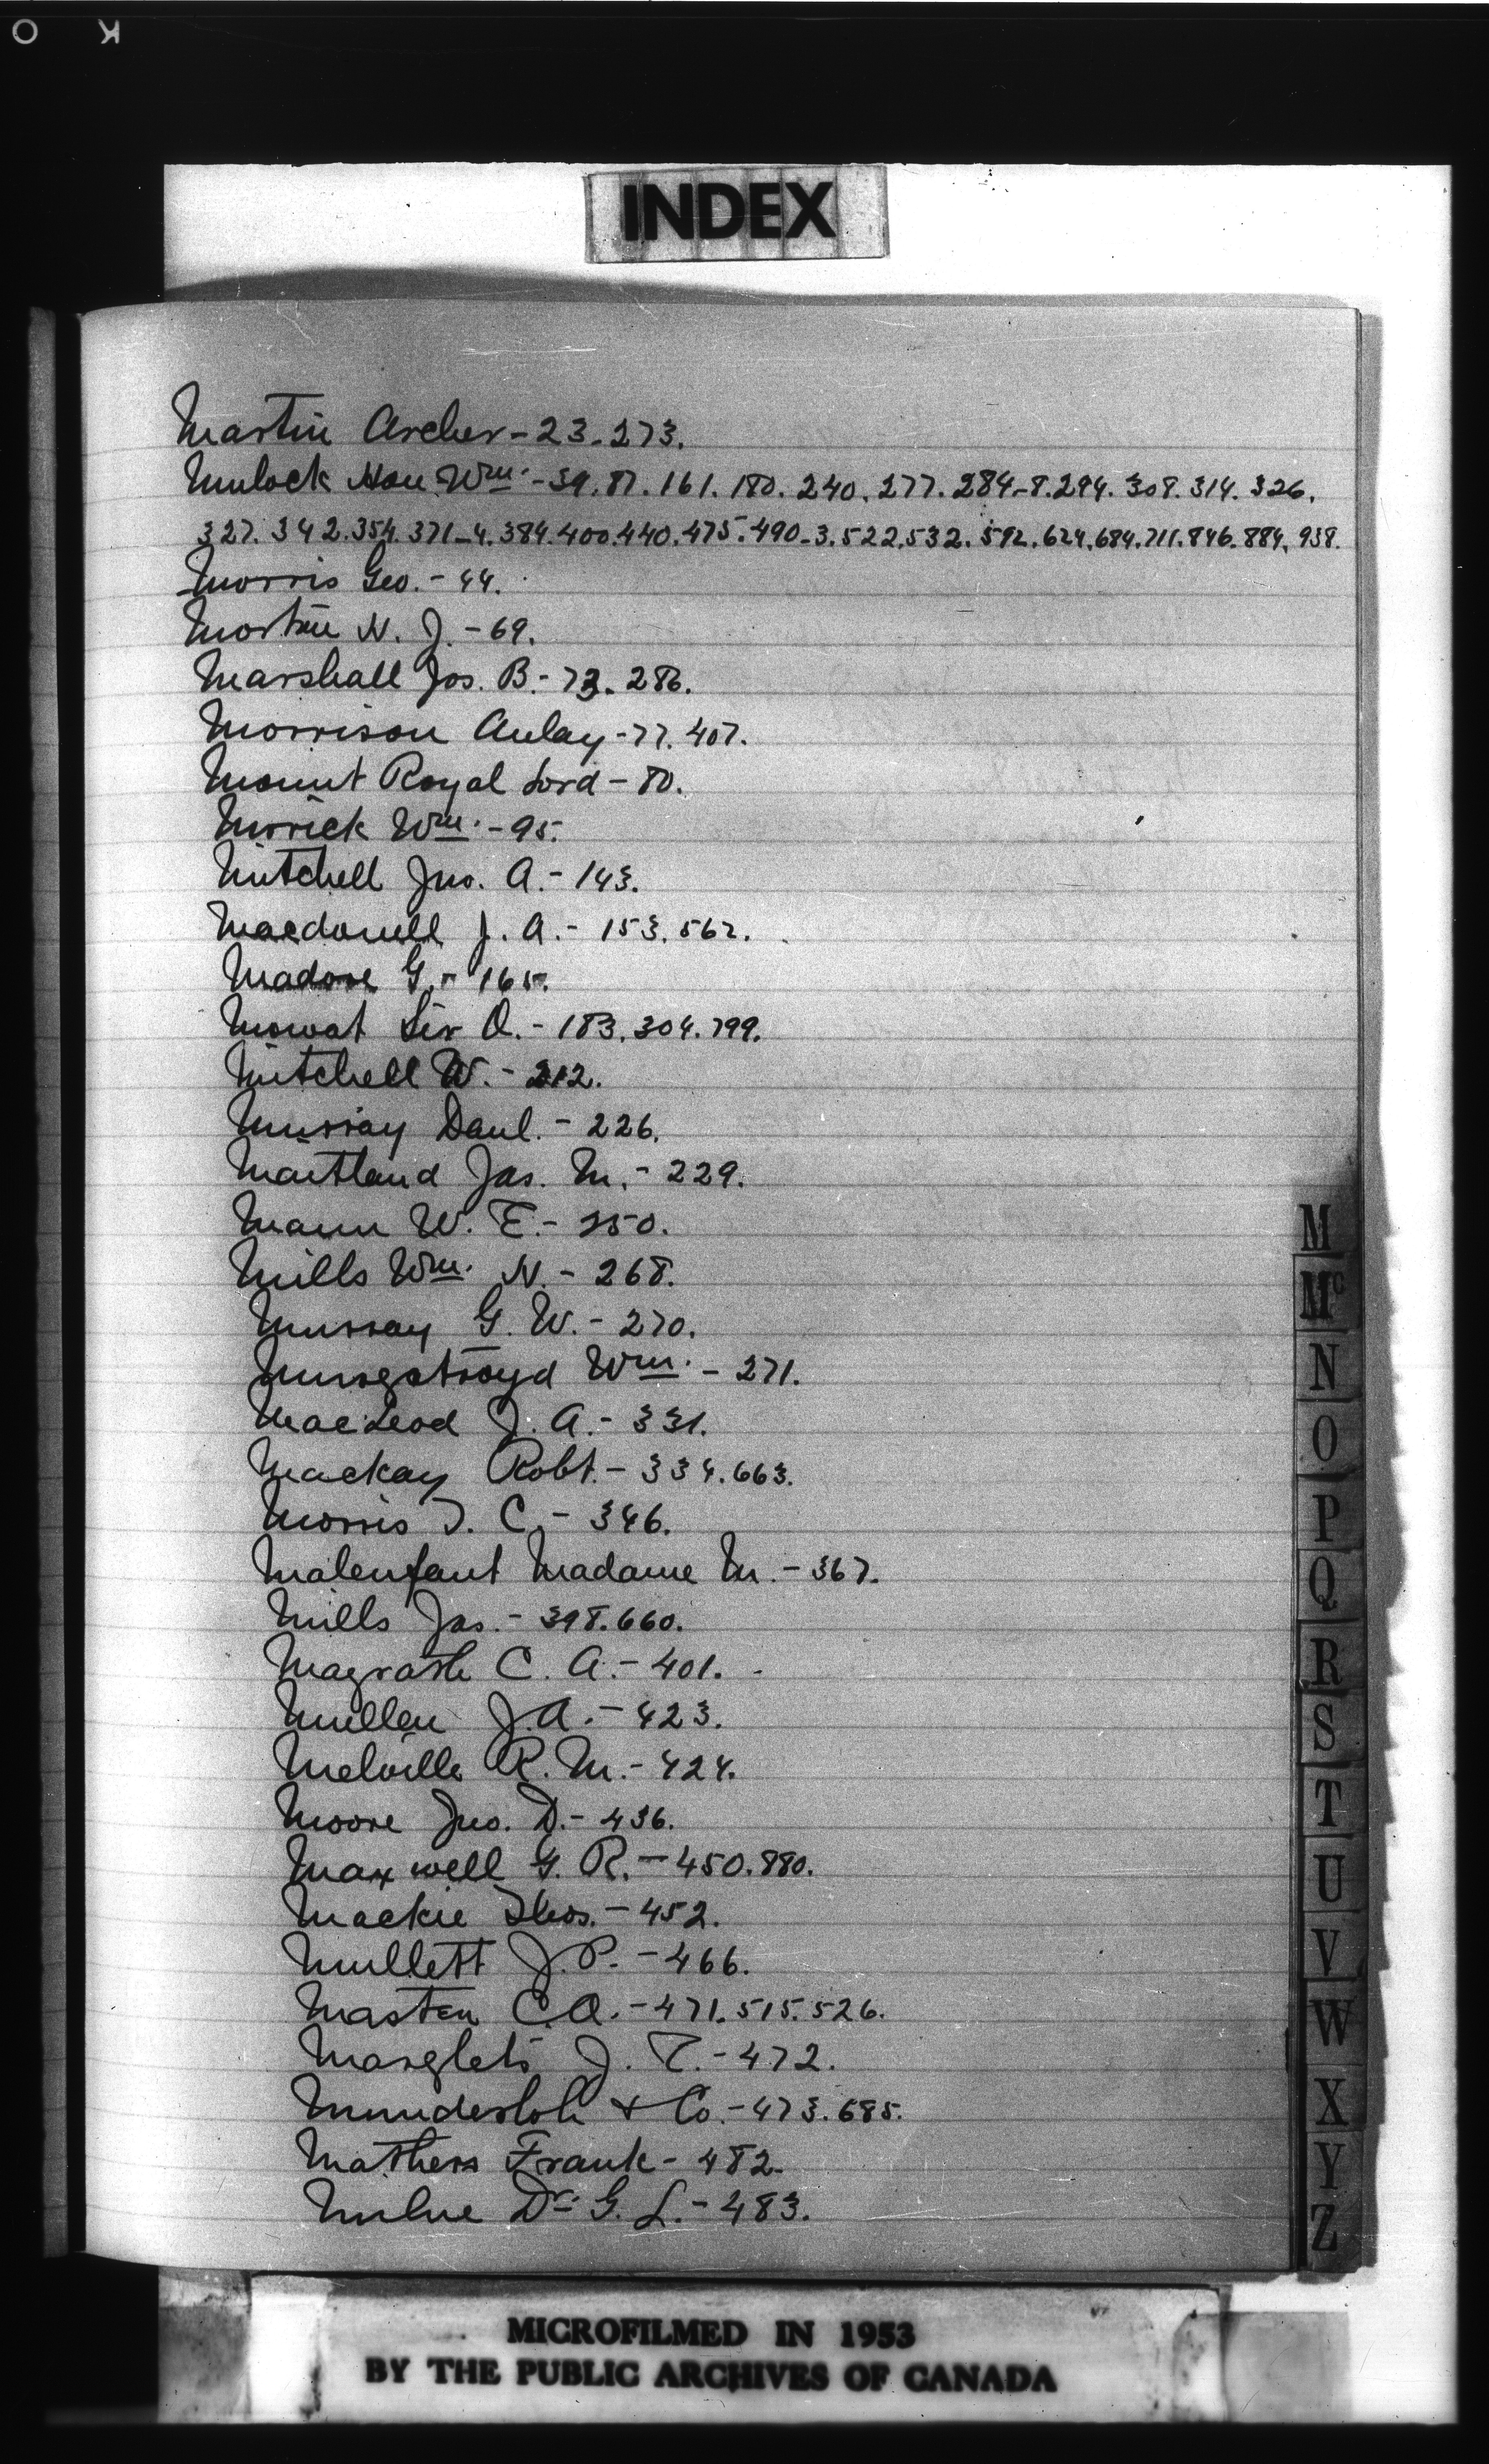 O K
INDEX
Martin Archer - 23. 273.
Mulock Hon. Wm. - 39. 87. 161. 180. 240. 277. 284-8. 294. 308. 314. 326.
327. 342. 354. 371-4. 384. 400. 440. 475. 490-3. 522. 532. 592. 624. 684. 711. 846. 884. 938.
Morris Geo. - 44.
Morton N. J. - 69.
Marshall Jos. B. - 73. 286.
Morrison Aulay - 77. 407.
Mount Royal Lord - 80.
Mirrick Wm. - 95.
Mitchell Jno. A. - 143.
Macdonell J. A. - 153. 562.
Madore G. - 165.
Mowat Sir O. - 183. 304. 799.
Mitchell W. - 212.
Murray Danl. - 226.
Maitland Jas. M. - 229.
Mann W. E. - 250.
Mills Wm. N. - 268.
Murray G. W. - 270.
Murgatroyd Wm. - 271.
MacLeod J. A. - 331.
Mackay Robt. - 334. 663.
Morris T. C. - 346.
Malenfant Madame M. - 367.
Mills Jas. - 398. 660.
Magrath C. A. - 401.
Mullen J. A. - 423.
Melville R. M. - 424.
Moore Jno. D. - 436.
Maxwell G. R. - 450. 880.
Mackie Thos. - 452.
Mullett J. P. - 466.
Masten C. A. - 471. 515. 526.
J. T. - 472.
Munderloh & Co. - 473. 685.
Mathers Frank - 482.
Milne Dr. G. L. - 483.
M
Mc
N
O
P
Q
R
S
T
U
V
W
X
Y
Z
MICROFILMED IN 1953
BY THE PUBLIC ARCHIVES OF CANADA